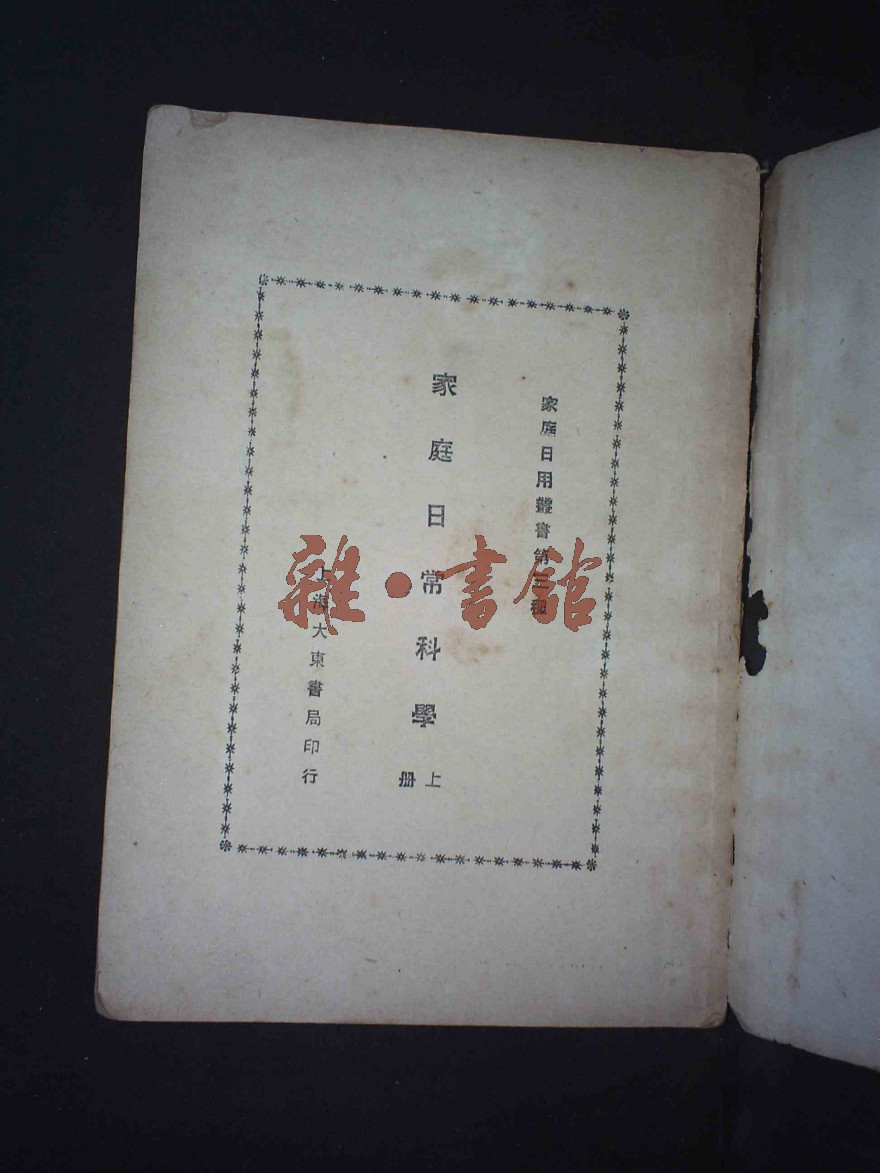 家庭日用叢書第三種
家庭日常科學
上册
上海大東書局印行
雜·書館